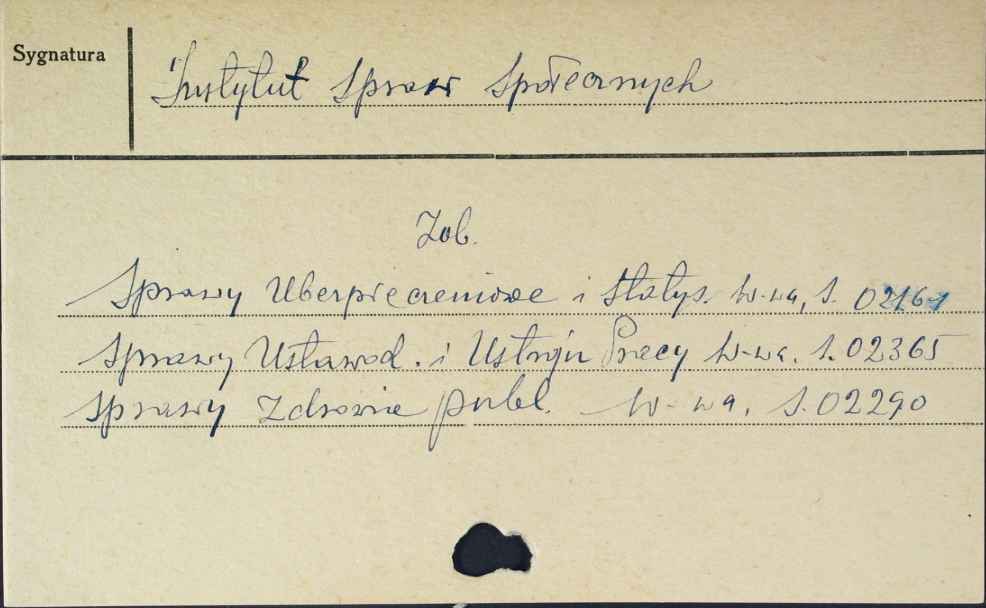 Sygnatura
Instytut Spraw Społecznych
Zob.
Sprawy Ubezpieczeniowe i Statys. W-wa, S. 02161
Sprawy Ustawod. i Ustroju Pracy W-wa. S. 02365
Sprawy Zdrowia publ. W-wa. S. 02290